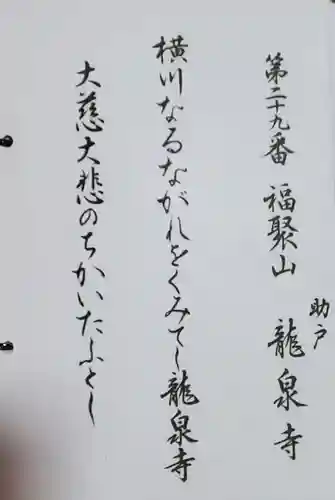 第二十九番 福聚山 助戸 龍泉寺
横川なるながれをくみてし龍泉寺
大慈大悲のちかいたふとし